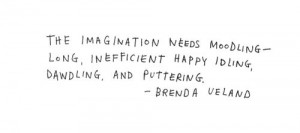 THE IMAGINATION NEEDS MOODLING—
LONG, INEFFICIENT HAPPY IDLING,
DAWDLING, AND PUTTERING.
- BRENDA UELAND